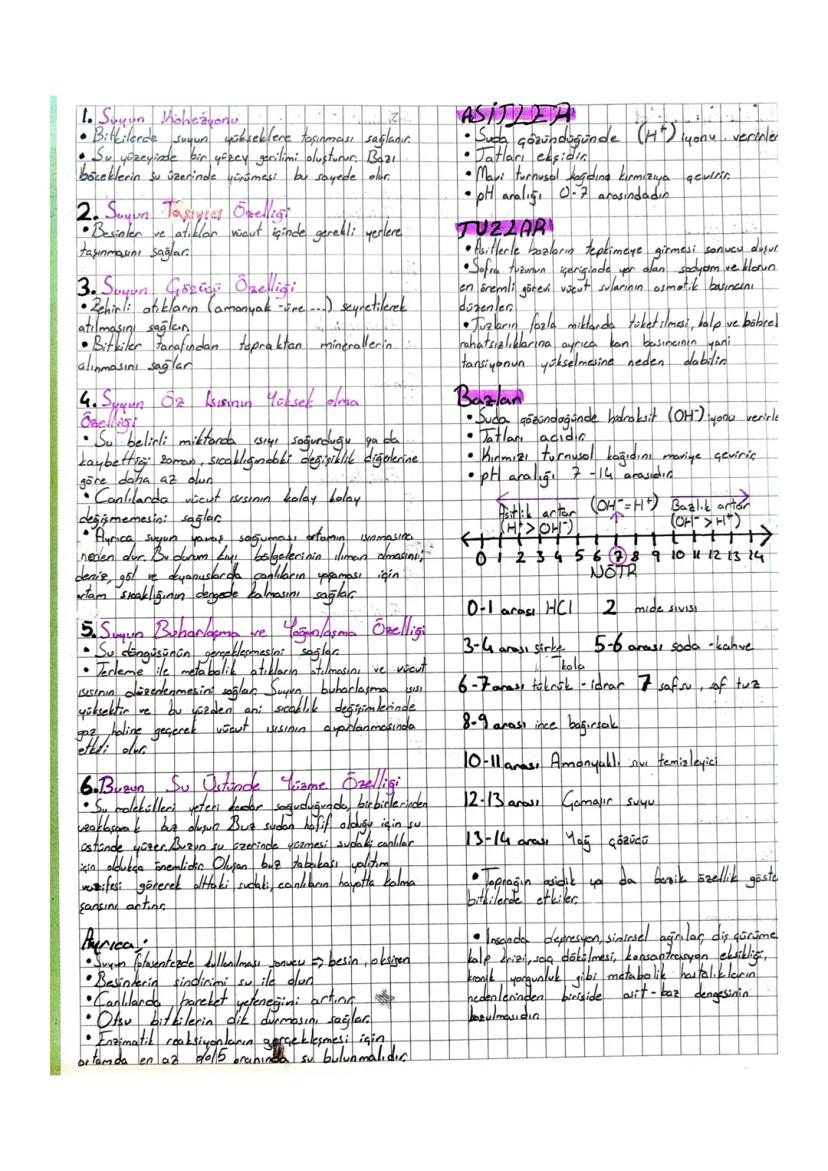 1. Suyun Kohezyonu
• Bitkilerde suyun yükseklere taşınması sağlanır.
• Su yüzeyinde bir yüzey gerilimi oluşturur. Bazı
böceklerin su üzerinde yürümesi bu sayede olur.
2. Suyun Taşıyıcı Özelliği
• Besinler ve atıklar vücut içinde gerekli yerlere
taşınmasını sağlar.
3. Suyun Çözücü Özelliği
• Zehirli atıkların (amonyak - üre ...) seyretilerek
atılmasını sağlar.
• Bitkiler tarafından topraktan minerallerin
alınmasını sağlar
4. Suyun Öz Isısının Yüksek olma
Özelliği
• Su belirli miktarda ısıyı soğurduğu ya da
kaybettiği zaman, sıcaklığındaki değişiklik diğerlerine
göre daha az olur.
• Canlılarda vücut ısısının kolay kolay
değişmemesini sağlar.
• Ayrıca suyun yavaş soğuması ortamın ısınmasına
neden olur. Bu durum kıyı bölgelerinin ılıman olmasını,
deniz, göl ve okyanuslarda canlıların yaşaması için
ortam sıcaklığının dengede kalmasını sağlar.
5. Suyun Buharlaşma ve Yoğunlaşma Özelliği
• Su döngüsünün gerçekleşmesini sağlar.
• Terleme ile metabolik atıkların atılmasını ve vücut
ısısının düzenlenmesini sağlar. Suyun buharlaşma ısısı
yüksektir ve bu yüzden ani sıcaklık değişimlerinde
gaz haline geçerek vücut ısısının ayarlanmasında
etkili olur.
6. Buzun Su Üstünde Yüzme Özelliği
• Su molekülleri yeteri kadar soğuduğunda, birbirlerinden
uzaklaşarak buz oluşur. Buz sudan hafif olduğu için su
üstünde yüzer. Buzun su üzerinde yüzmesi sudaki canlılar
için oldukça önemlidir. Oluşan buz tabakası yalıtım
vazifesi görerek alttaki sudaki, canlıların hayatta kalma
şansını artırır.
Ayrıca:
• Suyun fotosentezde kullanılması sonucu => besin, oksijen
• Besinlerin sindirimi su ile olur.
• Canlılarda hareket yeteneğini artırır.
• Otsu bitkilerin dik durmasını sağlar.
• Enzimatik reaksiyonların gerçekleşmesi için
ortamda en az %15 oranında su bulunmalıdır.
ASİTLER
• Suda çözündüğünde (H⁺) iyonu verirler
• Tatları ekşidir.
• Mavi turnusol kağıdını kırmızıya çevirir.
• pH aralığı 0-7 arasındadır.
TUZLAR
• Asitlerle bazların tepkimeye girmesi sonucu oluşur
• Sofra tuzunun içeriğinde yer alan sodyum ve klorun
en önemli görevi vücut sularının osmotik basıncını
düzenler.
• Tuzların fazla miktarda tüketilmesi, kalp ve böbrek
rahatsızlıklarına ayrıca kan basıncının yani
tansiyonun yükselmesine neden olabilir.
Bazlar
• Suda çözündüğünde hidroksit (OH⁻) iyonu verirle
• Tatları acıdır.
• Kırmızı turnusol kağıdını maviye çevirir.
• pH aralığı 7 -14 arasıdır.
Asitlik artar (OH⁻=H⁺) Bazlık artar
(H⁺>OH⁻) (OH⁻>H⁺)
0 1 2 3 4 5 6 7 8 9 10 11 12 13 14
NÖTR
0-1 arası HCl 2 mide sıvısı
3-4 arası sirke 5-6 arası soda - kahve
kola
6-7 arası tükrük - idrar 7 saf su, saf tuz
8-9 arası ince bağırsak
10-11 arası Amonyaklı sıvı temizleyici
12-13 arası Çamaşır suyu
13-14 arası Yağ çözücü
• Toprağın asidik ya da bazik özellik göste
bitkilerde etkiler.
• İnsanda depresyon, sinirsel ağrılar, diş çürüme
kalp krizi, saç dökülmesi, konsantrasyon eksikliği,
kronik yorgunluk gibi metabolik hastalıkların
nedenlerinden biriside asit-baz dengesinin
bozulmasıdır.